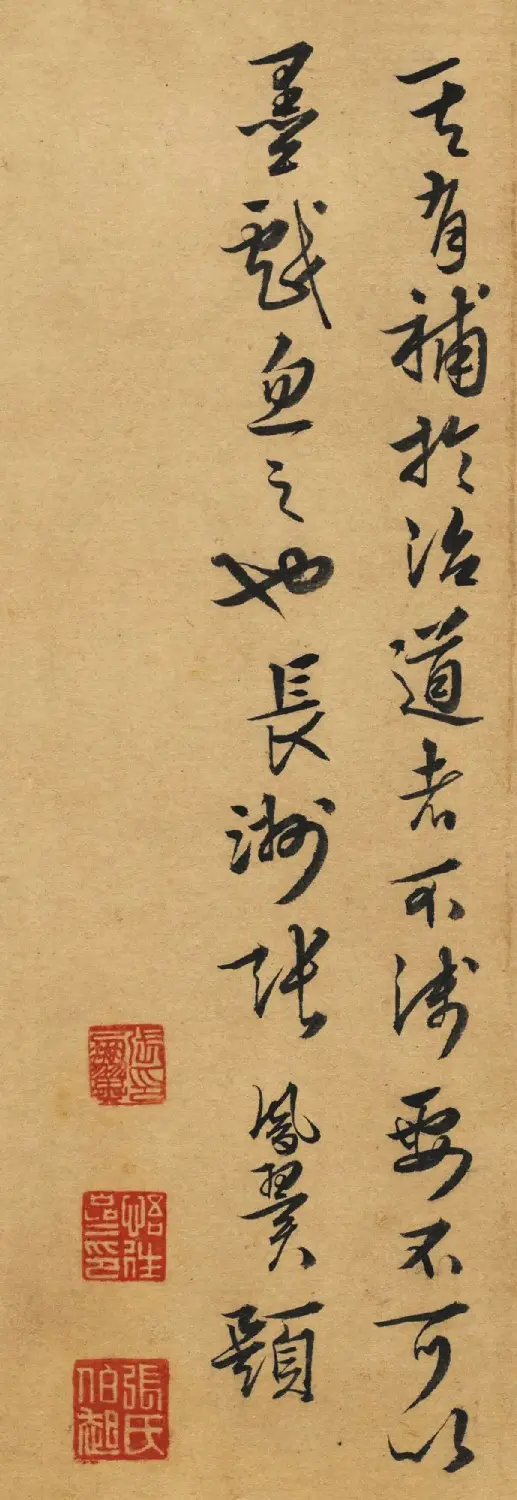 其有補於治道者不淺要不可以
墨戲忽之也長洲張鳳翼題
張氏伯起